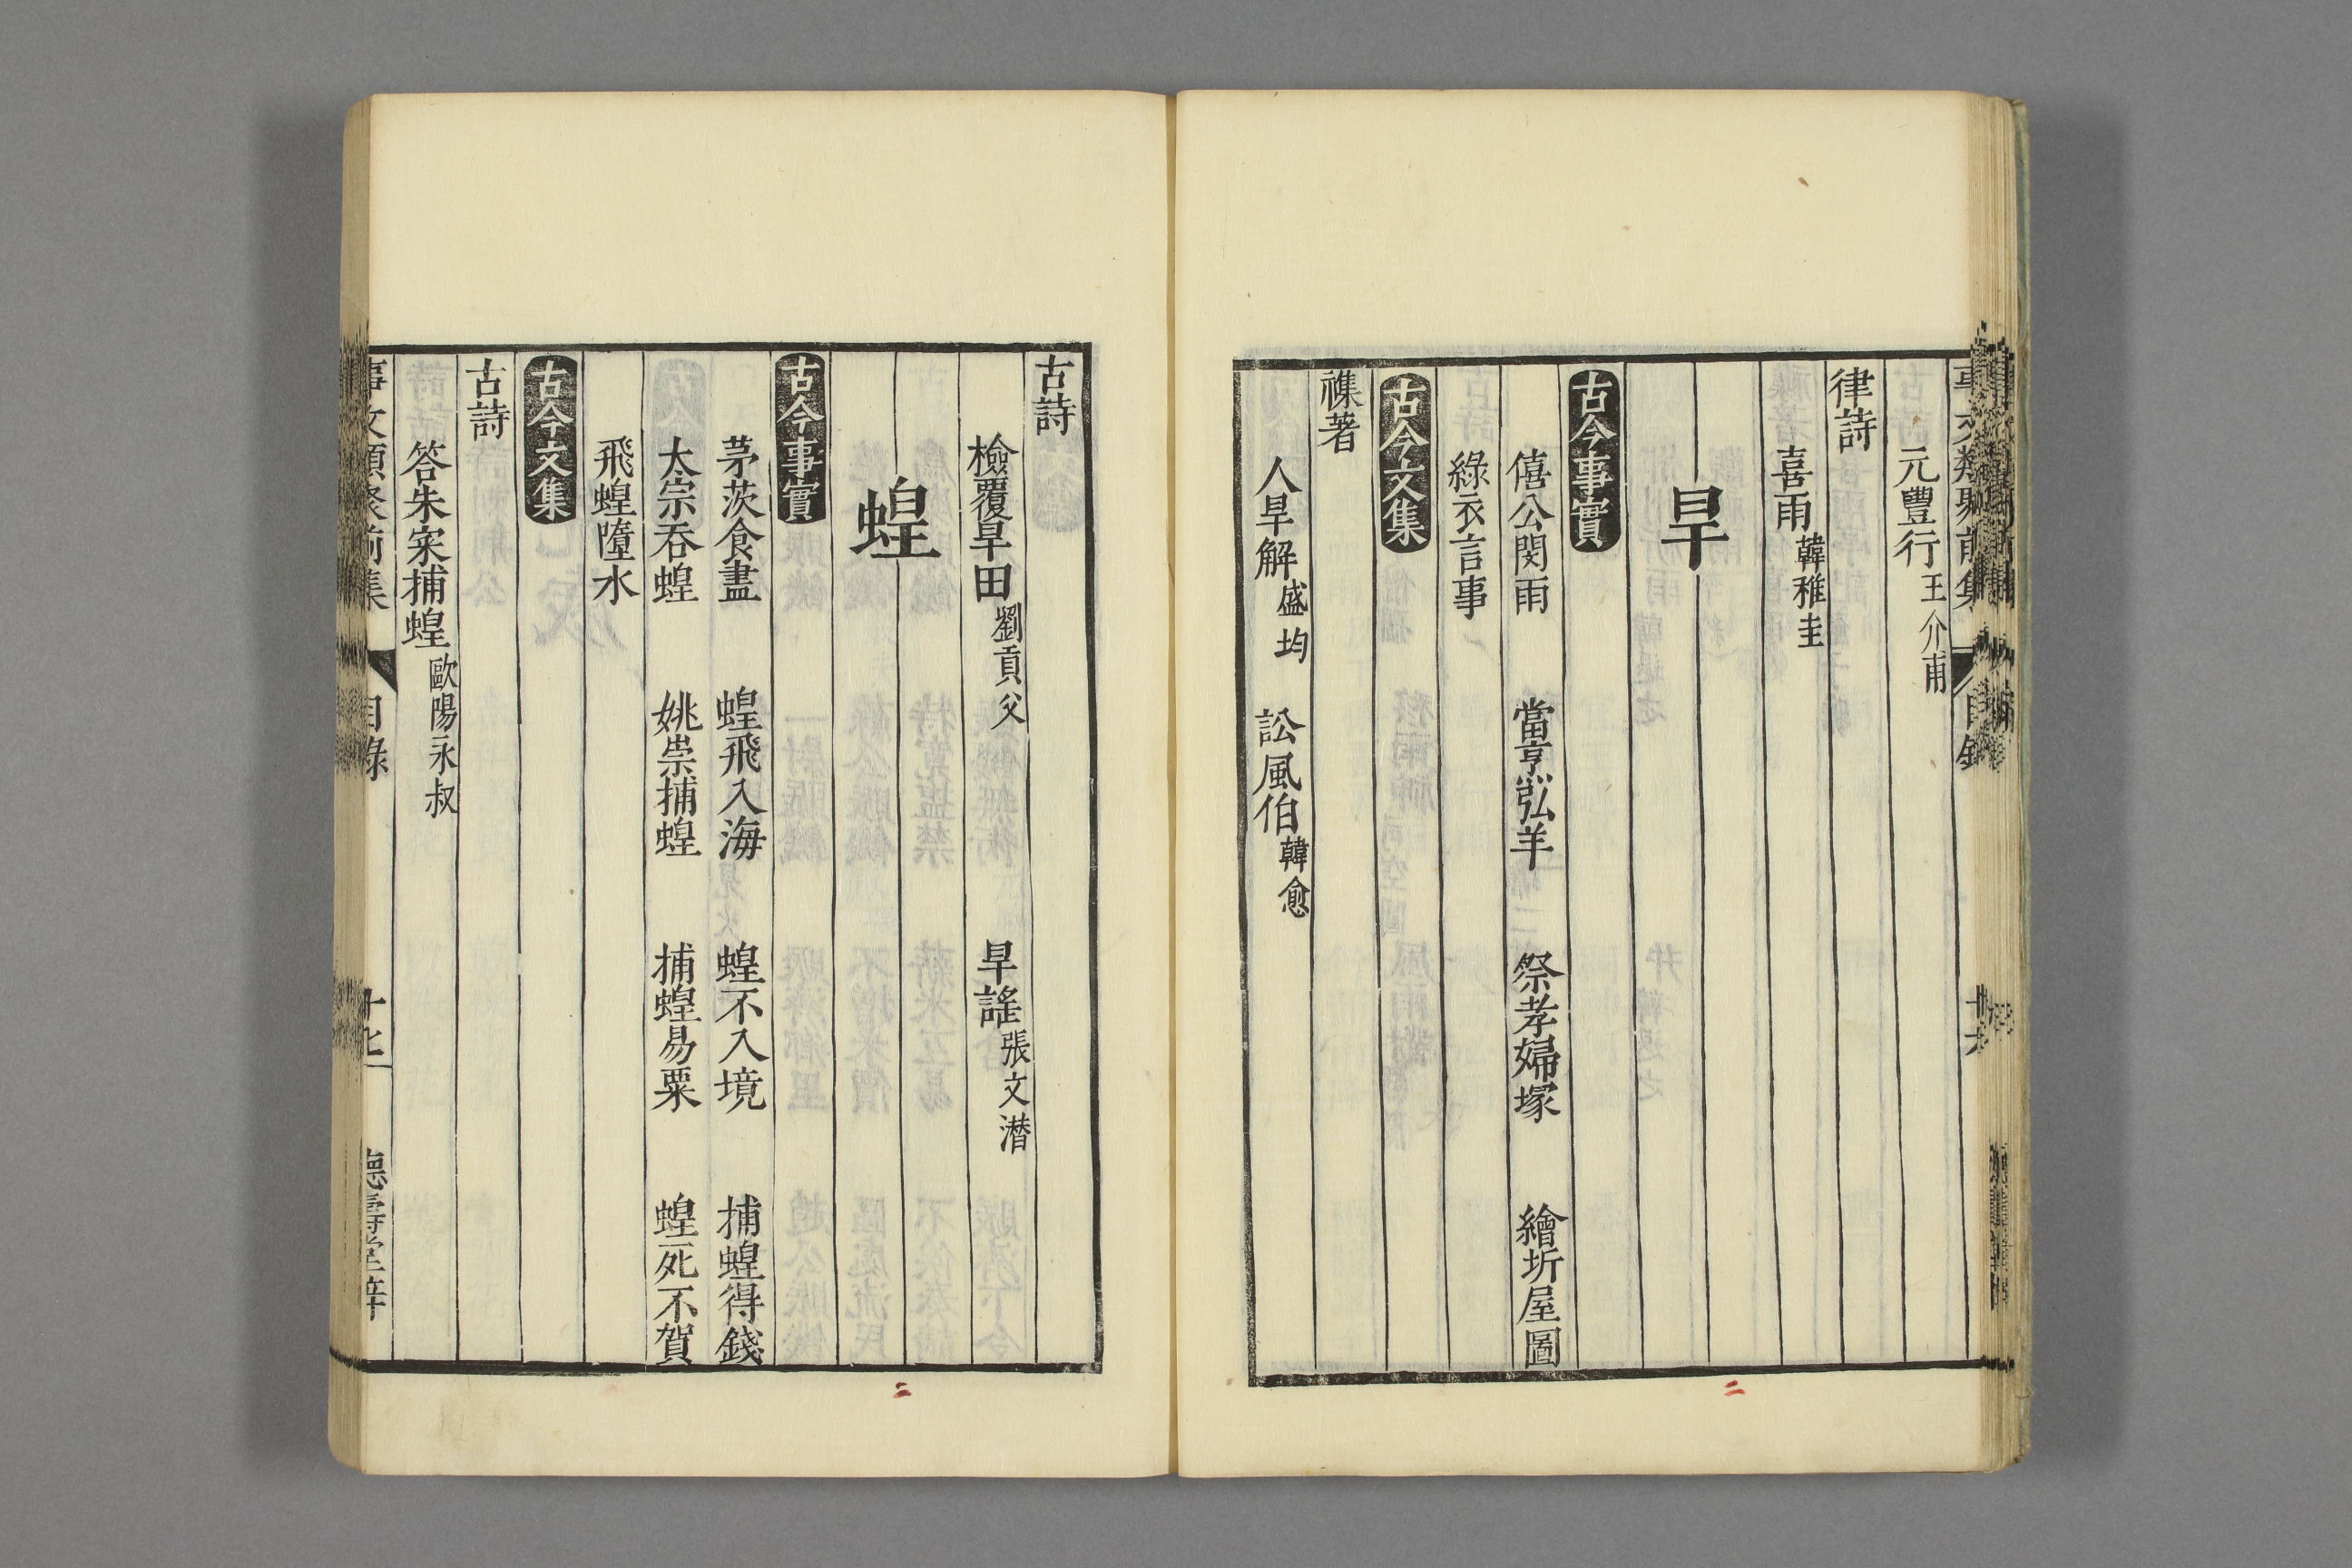 元豐行王介甫
律詩
喜雨韓稚圭
旱
古今事實
僖公閔雨　當亨弘羊　祭孝婦塚　繪圻屋圖
綠衣言事
古今文集
襍著
人旱解盛均　訟風伯韓愈
古詩
檢覆旱田劉貢父　旱謠張文潜
蝗
古今事實
茅茨食盡　蝗飛入海　蝗不入境　捕蝗得錢
太宗吞蝗　姚崇捕蝗　捕蝗易粟　蝗死不賀
飛蝗墮水
古今文集
古詩
答朱寀捕蝗歐陽永叔